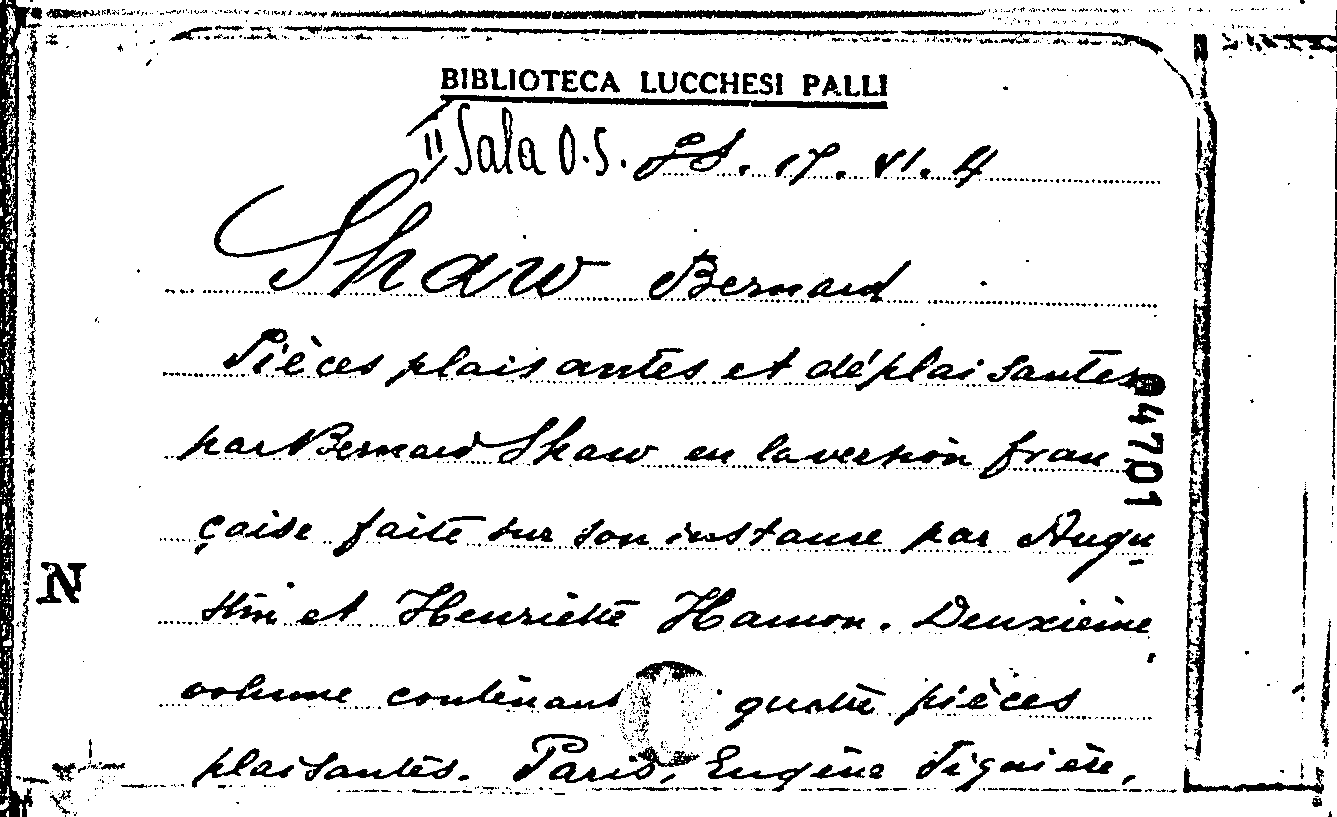 BIBLIOTECA LUCCHESI PALLI
II Sala O.S. 17. VI. 4
Shaw Bernard
Pièces plaisantes et déplaisantes
par Bernard Shaw en la version fran
çaise faite sur son instance par Augu-
stin et Henriette Hamon. Deuxième
volume contenant quatre pièces
plaisantes. Paris, Eugène Figuière,
04701
N